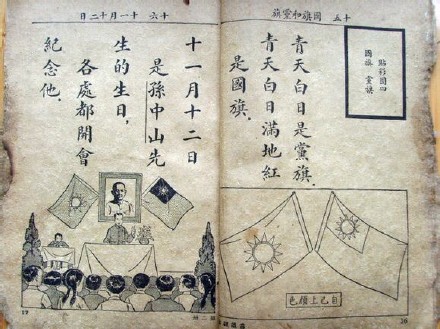 十五　國旗和黨旗
貼彩圖四
國旗　黨旗
青天白日是黨旗.
青天白日滿地紅
是國旗.
自己上顏色
16
十六　十一月十二日
十一月十二日
是孫中山先
生的生日,
各處都開會
紀念他.
17